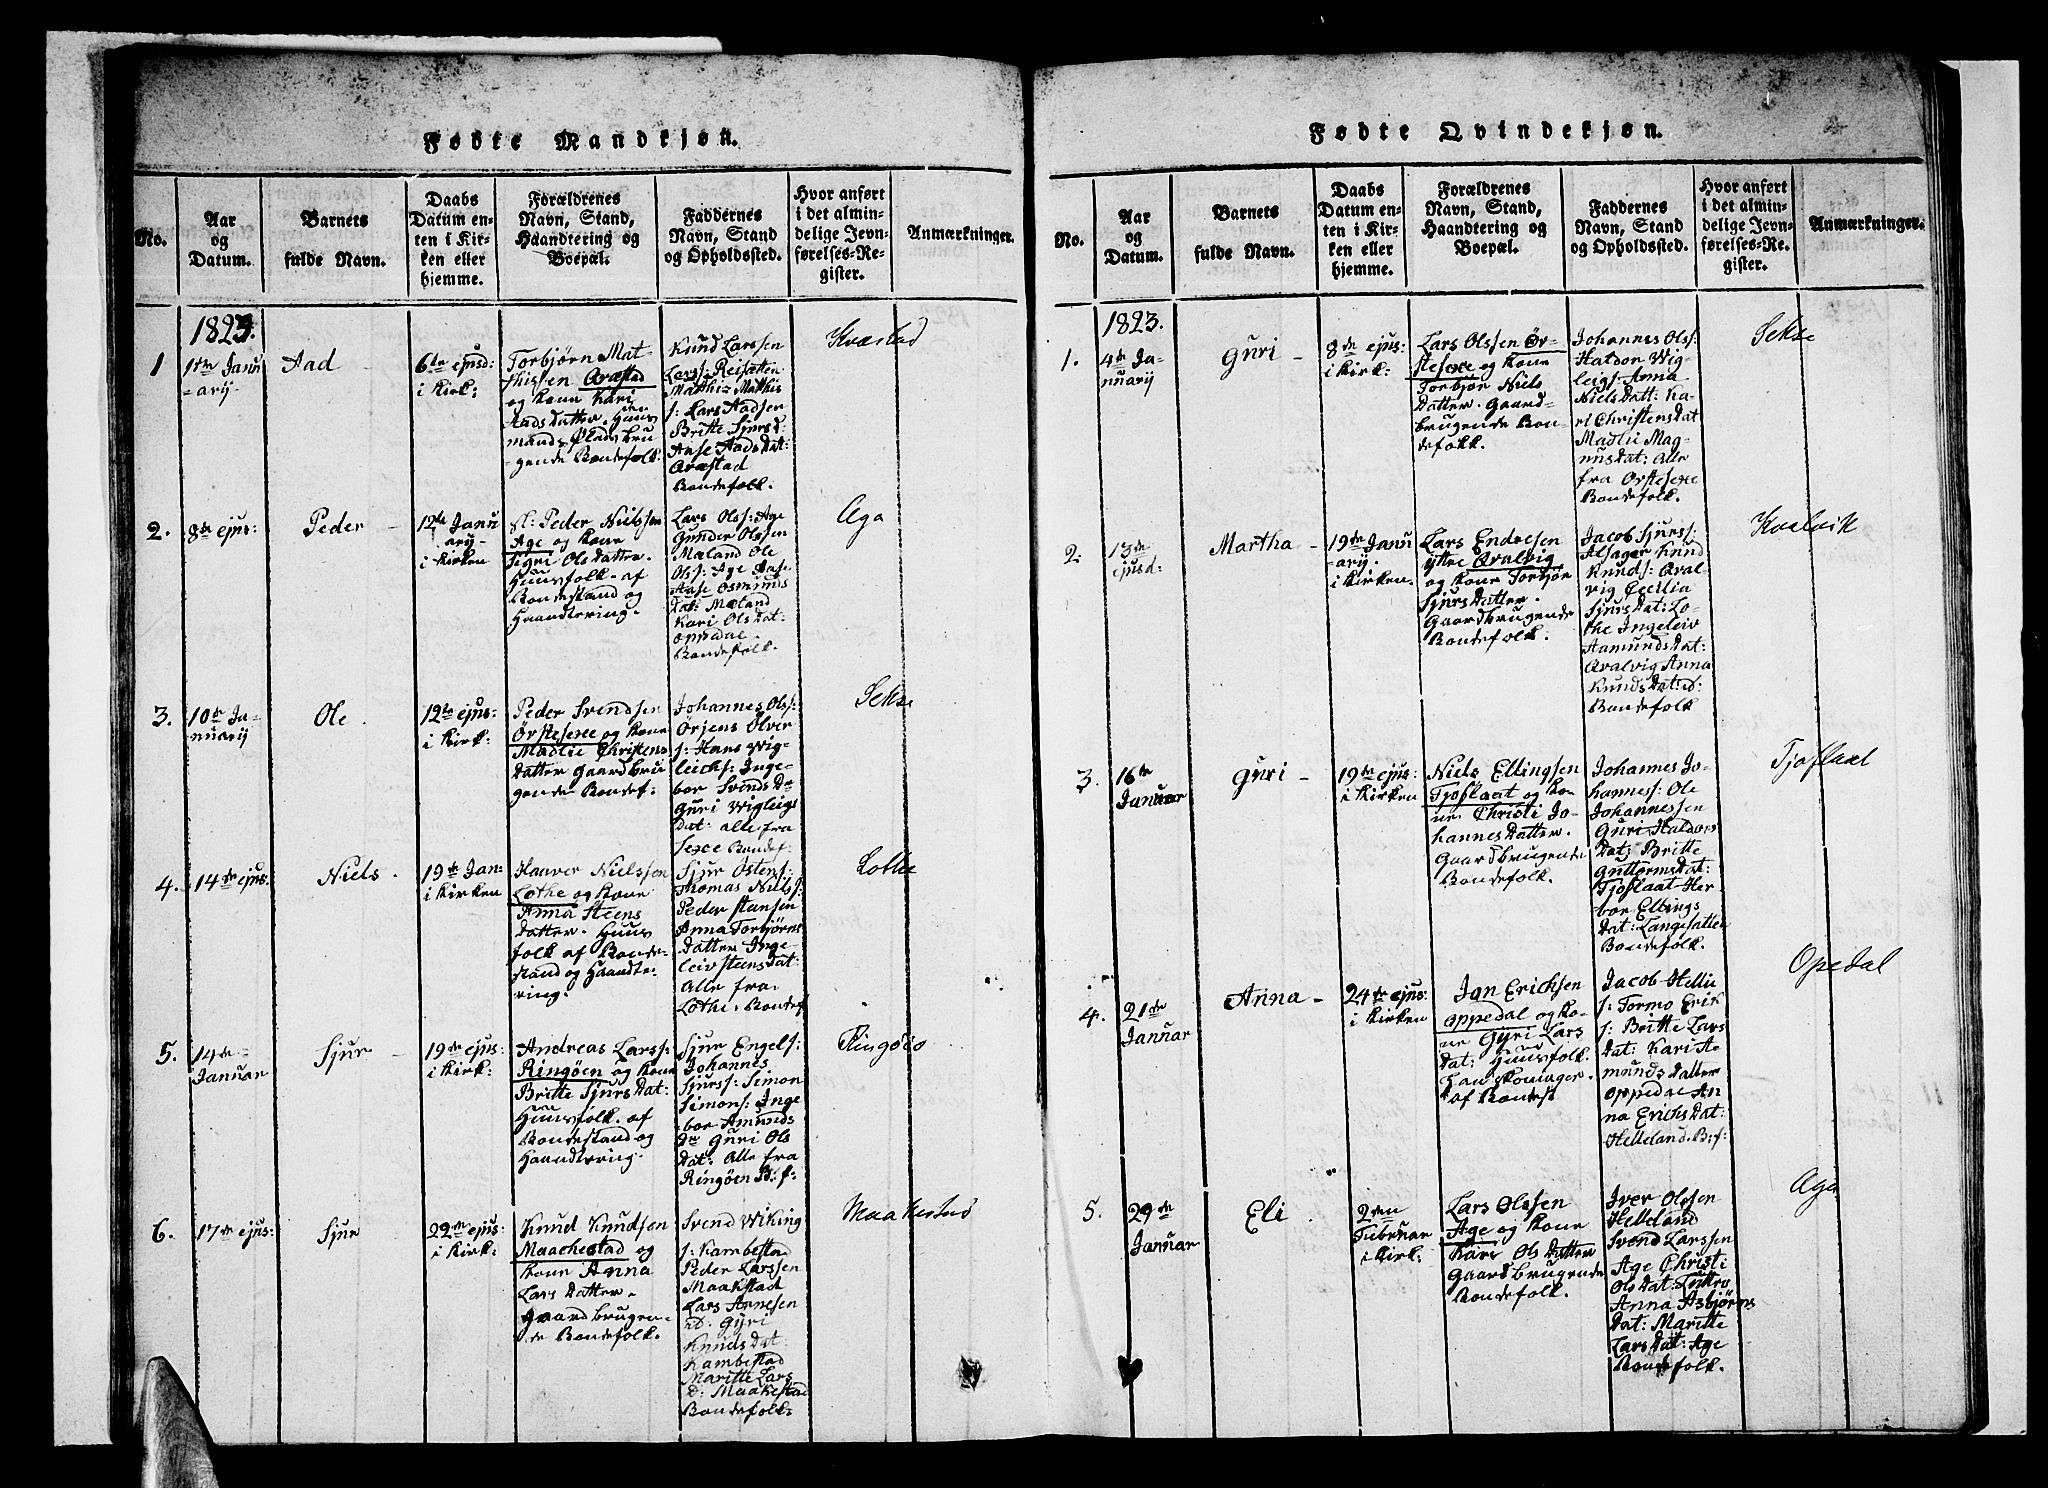 Fødte Mandkjøn.
No.
Aar
og
Datum.
Barnets
fulde Navn.
Daabs
Datum en-
ten i Kir-
ken eller
hjemme.
Forældrenes
Navn, Stand,
Haandtering og
Boepæl.
Faddernes
Navn, Stand
og Opholdssted.
Hvor anført
i det almin-
delige Jevn-
førelses-Re-
gister.
Anmærkninger.
1823.
1
1ste Janu
-ary-
Aad
6te ejusd:
i Kirk:
Torbjørn Mat-
thissen Qvæstad
og Kone Kari
Aads Datter. Huus
mands Plads bru
-gende Bondefolk.
Knud Larssen
Lars: Reisætten
Matthiz Mathis
s: Lars Aadsen
Britte Sjursd:
Anse Aads Dat:
Qvæstad
Bondefolk.
Kvæstad
2.
8de ejus:
Peder -
12te Janu
ary-
i Kirken
sl: Peder Nielssen
Age og Kone
Sigri Ols Datter.
Huusfolk. af
Bondestand og
Haandtering.
Lars Olss: Age
Gunder Olssen
Mæland Ole
Olss: Age Anse
Anse Osmunds
Dat: Mæland
Kari Ols Dat:
Oppedal.
Bondefolk.
Aga
3.
10de Ja-
nuarij
Ole.
12te ejus:
i Kirk:
Peder Svendsen
Ørstesexe og Kone
Madlie Christens
Datter Gaardbru
gende Bondef:
Johannes Olss:
Ørjens Ølver
s: Hans Wig-
leichs: Inge-
bor Svends Dr
Guri Wigleigs
dat: alle fra
Sexe Bondef:
Sekse
4.
14de ejus.
Niels.
19de Jan:
i Kirken
Haaver Nielssen
Lothe og Kone
Anna Steens
Datter. Huus
folk af Bonde-
stand og Haandte-
ring.
Sjur Ostens:
Thomas Niels:
Peder Stensen
Anna Torbjørns
Datter Inge-
leiv Steens Dat:
Alle fra
Lothe. Bondef
Lothe
5.
14de-
Januar
Sjur -
19de ejus:
i Kirk:
Andreas Larss:
Ringøen og Kone
Britte Sjurs Dat:
Huusfolk. af
Bondestand og
Haandtering.
Sjur Engels:
Johannes
Sjurss: Simon
Simons: Inge
bor Amunds
Dr Guri Ols
Dat: Alle fra
Ringøen B: f:
Ringøio
6.
17de ejus:
Sjur
22de ejus:
i Kirk:
Knud Knudsen
Maachestad og
Kone Anna
Lars Datter-
Gaardbrugen-
de Bondefolk.
Svend Wiking
s: Kambesta
Peder Larssen
Maakstad
Lars Arnesen
id. Gyri
Knuds Dat:
Kambestad
Maritte Lars
D: Maakestad
Bondefolk.
Maakestad
Fødte Qvindekjøn.
No.
Aar
og
Datum.
Barnets
fulde Navn.
Daabs
Datum en-
ten i Kir-
ken eller
hjemme.
Forældrenes
Navn, Stand,
Haandtering og
Boepæl.
Faddernes
Navn, Stand
og Opholdssted.
Hvor anført
i det almin-
delige Jevn-
førelses-Re-
gister.
Anmærkninger.
1823.
1.
4de Ja-
nuarij
Guri -
8de ejus:
i Kirk:
Lars Olssen Ør-
stesexe og Kone
Torbjør Niels
Datter. Gaard-
brugende Bon-
defolk.
Johannes Olss:
Hatson Wig-
leigs. Anna
Niels Datt: Ka-
ri Christens Dat
Madlie Mag-
nusdat: Alle
fra Orstesexe
Bondefolk.
Sekse
2.
13de
ejusd:
Martha -
19de Janu
ary.
i Kirken.
Lars Endresen
yttre Qvalvig
og Kone Torbjør
Sjurs Datter.
Gaardbrugende
Bondefolk.
Jacob Sjurss:
Alsager Knud
Knuds: Qval-
vig Cecilia
Sjurs Dat: Lo-
the Ingeleiv
Aamunds Dat:
Qvalvig Anna
Knuds Dat: id:
Bondefolk
Kvalvik
3.
16de
Januar
Guri -
19de ejus:
i Kirken
Niels Ellingsen
Tjoflaat og Ko-
ne Christi Jo-
hannes Datter.
Gaardbrugende
Bondefolk.
Johannes Jo-
hanness: Ole
Johannessen
Guri Haldors
Dat: Britte
Guttormsdat:
Tjoflaat Her-
bor Ellings
Dat: Langesatten
Bondefolk.
Tjoflaat
4.
21de
Januar
Anna -
24de ejus:
i Kirken
Jan Erichsen
Oppedal og Ko-
ne Gyri Lars
Dat: Huusfolk.
af Bondest
Jacob Hellie
s: Tormo Erik
s: Britte Lars
Dat: Kari A-
munds Datter
Oppedal An-
na Erichs Dat:
Helleland. B: f:
Opedal
5.
29de
Januar
Eli.
2den
Februar
i Kirk:
Lars Olssen
Age og Kone
Kari Ols Datter
Gaardbrugende
Bondefolk.
Iver Olssen
Helleland
Svend Larssen
Age Christi
Ols Dat: Luttro
Anna Asbjørns
Dat: Maritte
Lars Dat: Age
Bondefolk.
Aga